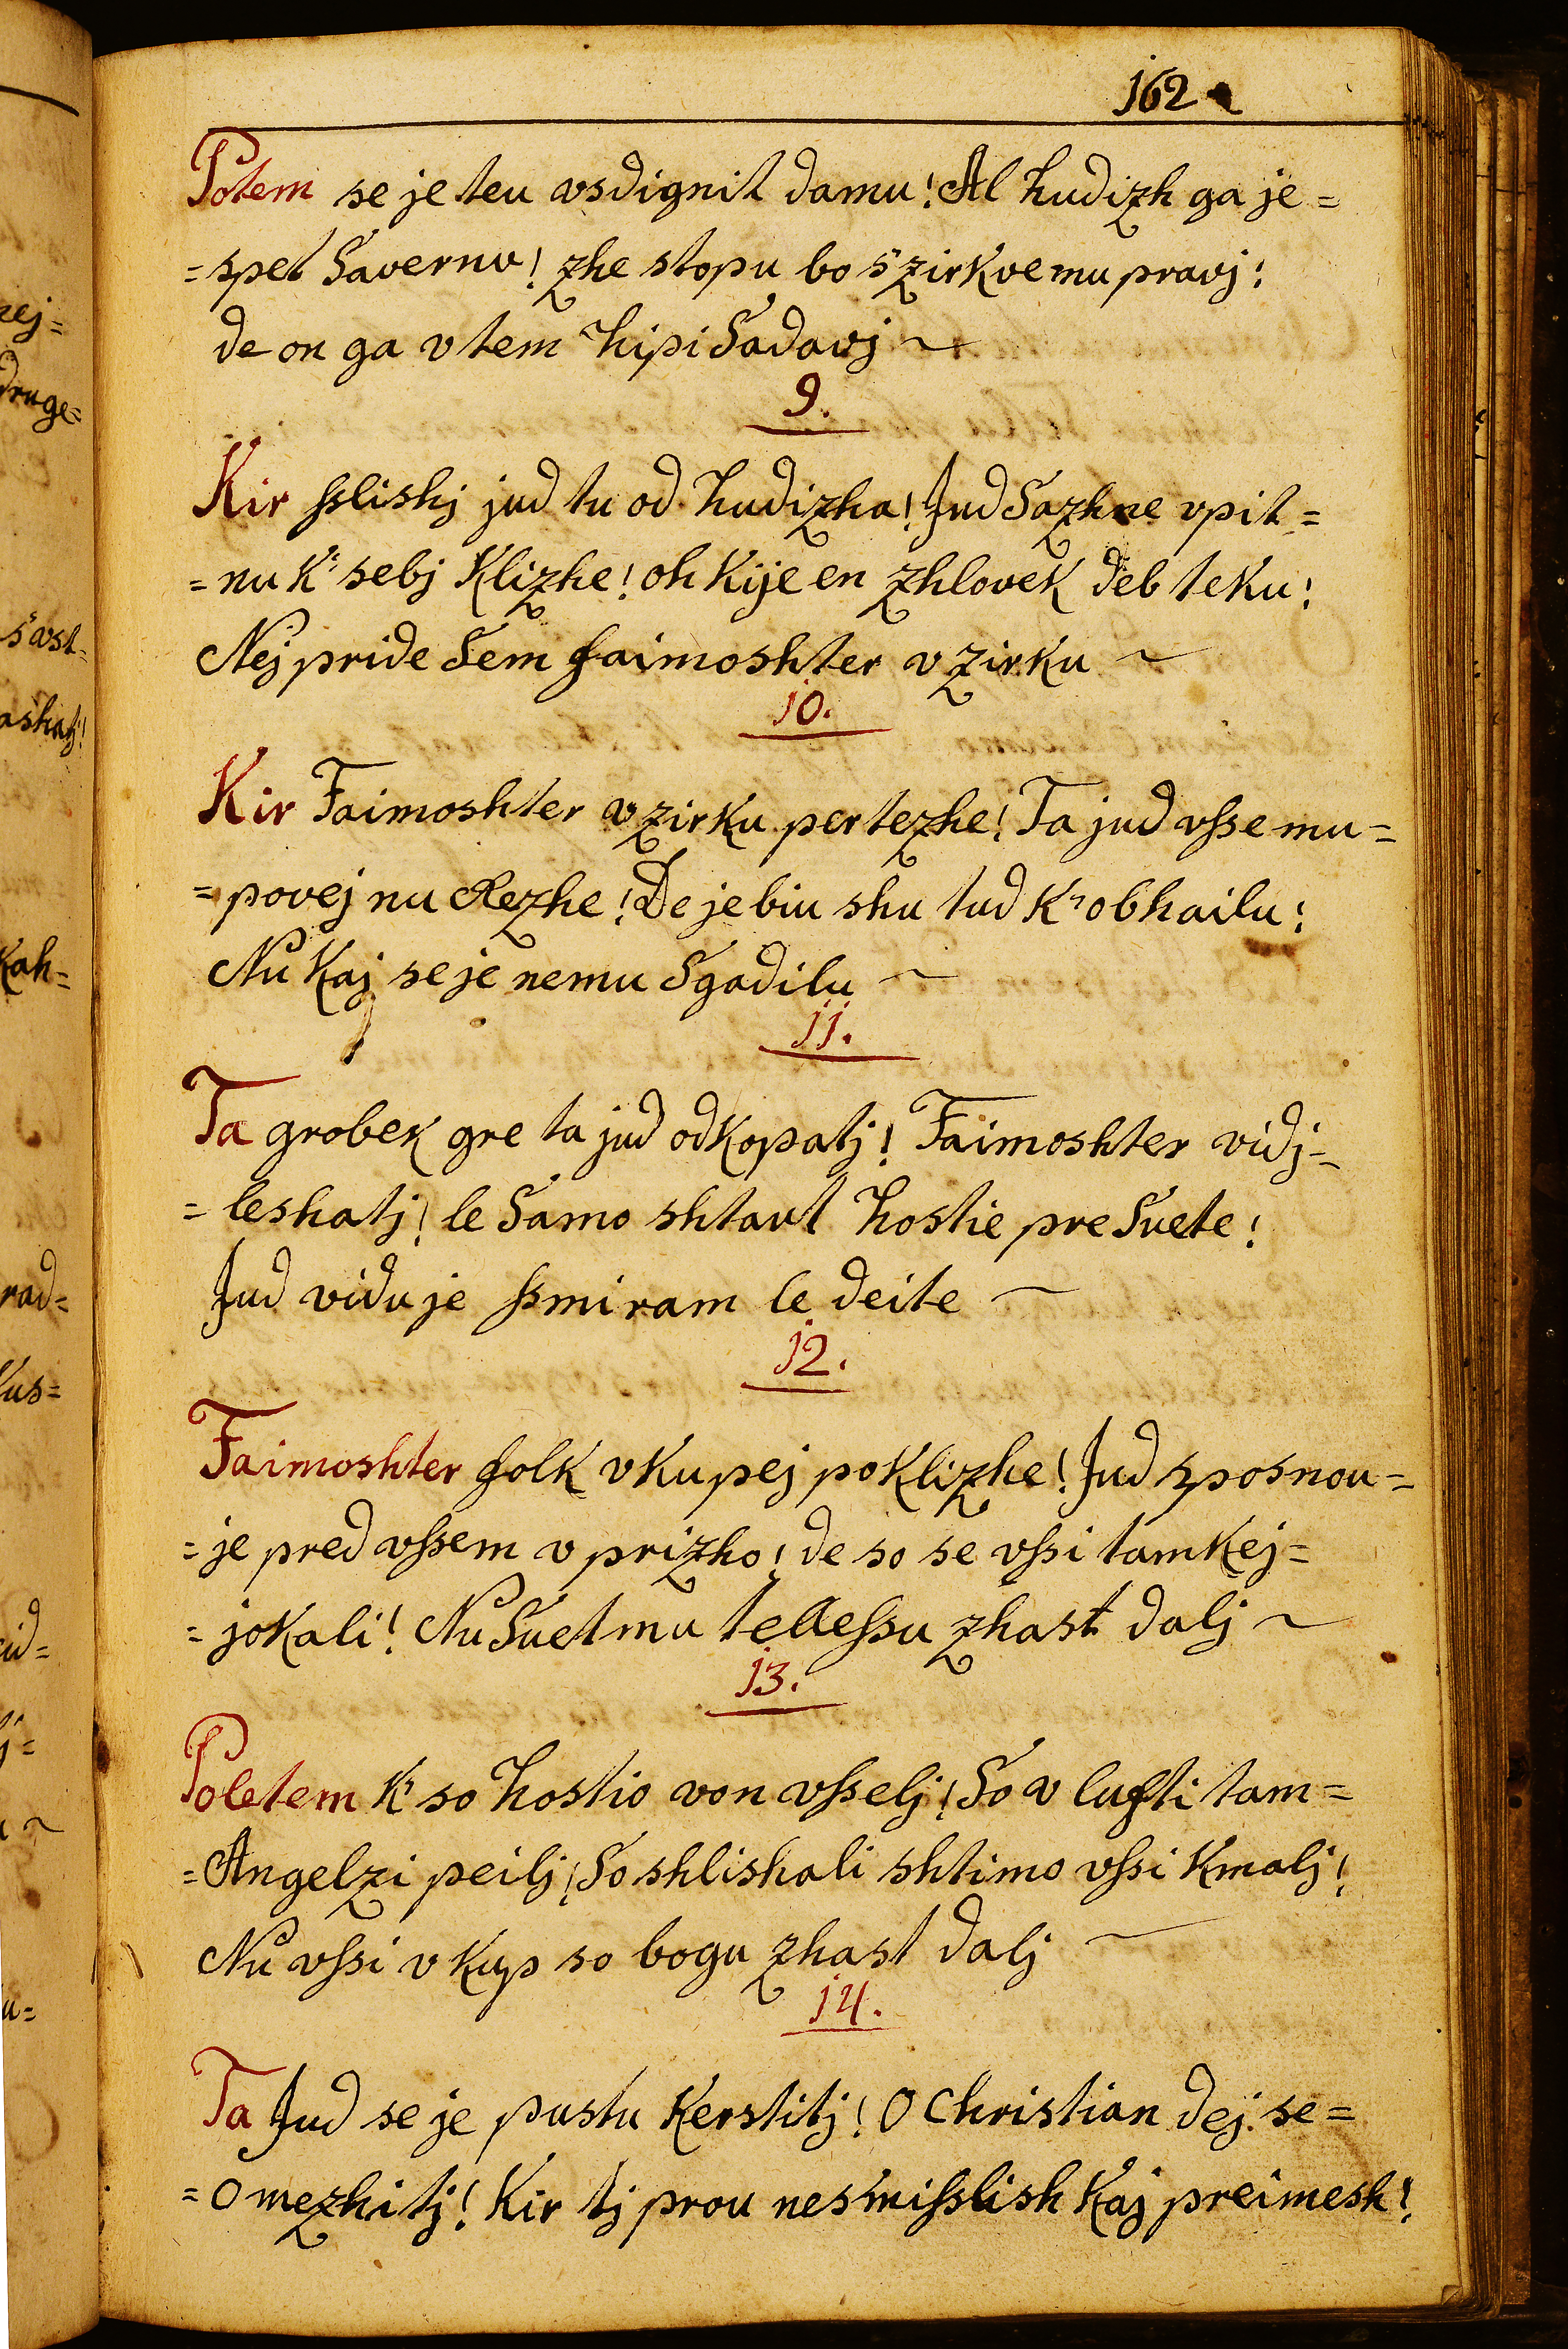 162
Potem se je teu vsdignit damu! Al hudizh ga je=
=spet Savernu! zhe stopu bo s'zirkve mu pravj!
de on ga v tem hipi Sadavj ~
9.
Kir ſslishj jud tu od hudizha! Jud Sazhne vpit=
=nu k' sebj Klizhe! oh kije en zhlovek deb teku!
Nej pride Sem faimoshter v zirku ~
10.
Kir Faimoshter v zirku pertezhe! Ta jud vſse mu=
=povej nu Rezhe! De je biu shu tud k' obhailu!
Nu kaj se je nemu Sgadilu ~
11.
Ta grobek gre ta jud odkopatj! Faimoshter vidj=
=leshatj! le Samo shtart hostie pre Svete!
Jud vidu je ſsmiram le deite ~
12.
Faimoshter folk vkupej poklizhe! Jud sposnou=
=je pred vſsem v prizho! de so se vſsi tamkej=
=jokali! Nu Svetmu telleſsu zhast dalj ~
13.
Poletem k' so hostio von vſselj! So v lufti tam=
=Angelzi peilj! So shlishali shtimo vſsi kmalj!
Nu vſsi v kup so bogu zhast dalj ~
14.
Ta Jud se je pustu kerstitj! O Christian dej se=
=omezhitj! Kir tj prou nesmiſslish kaj preimesh!
zej=
druge=
s'avst=
ashatj!
kah=
rad=
kus=